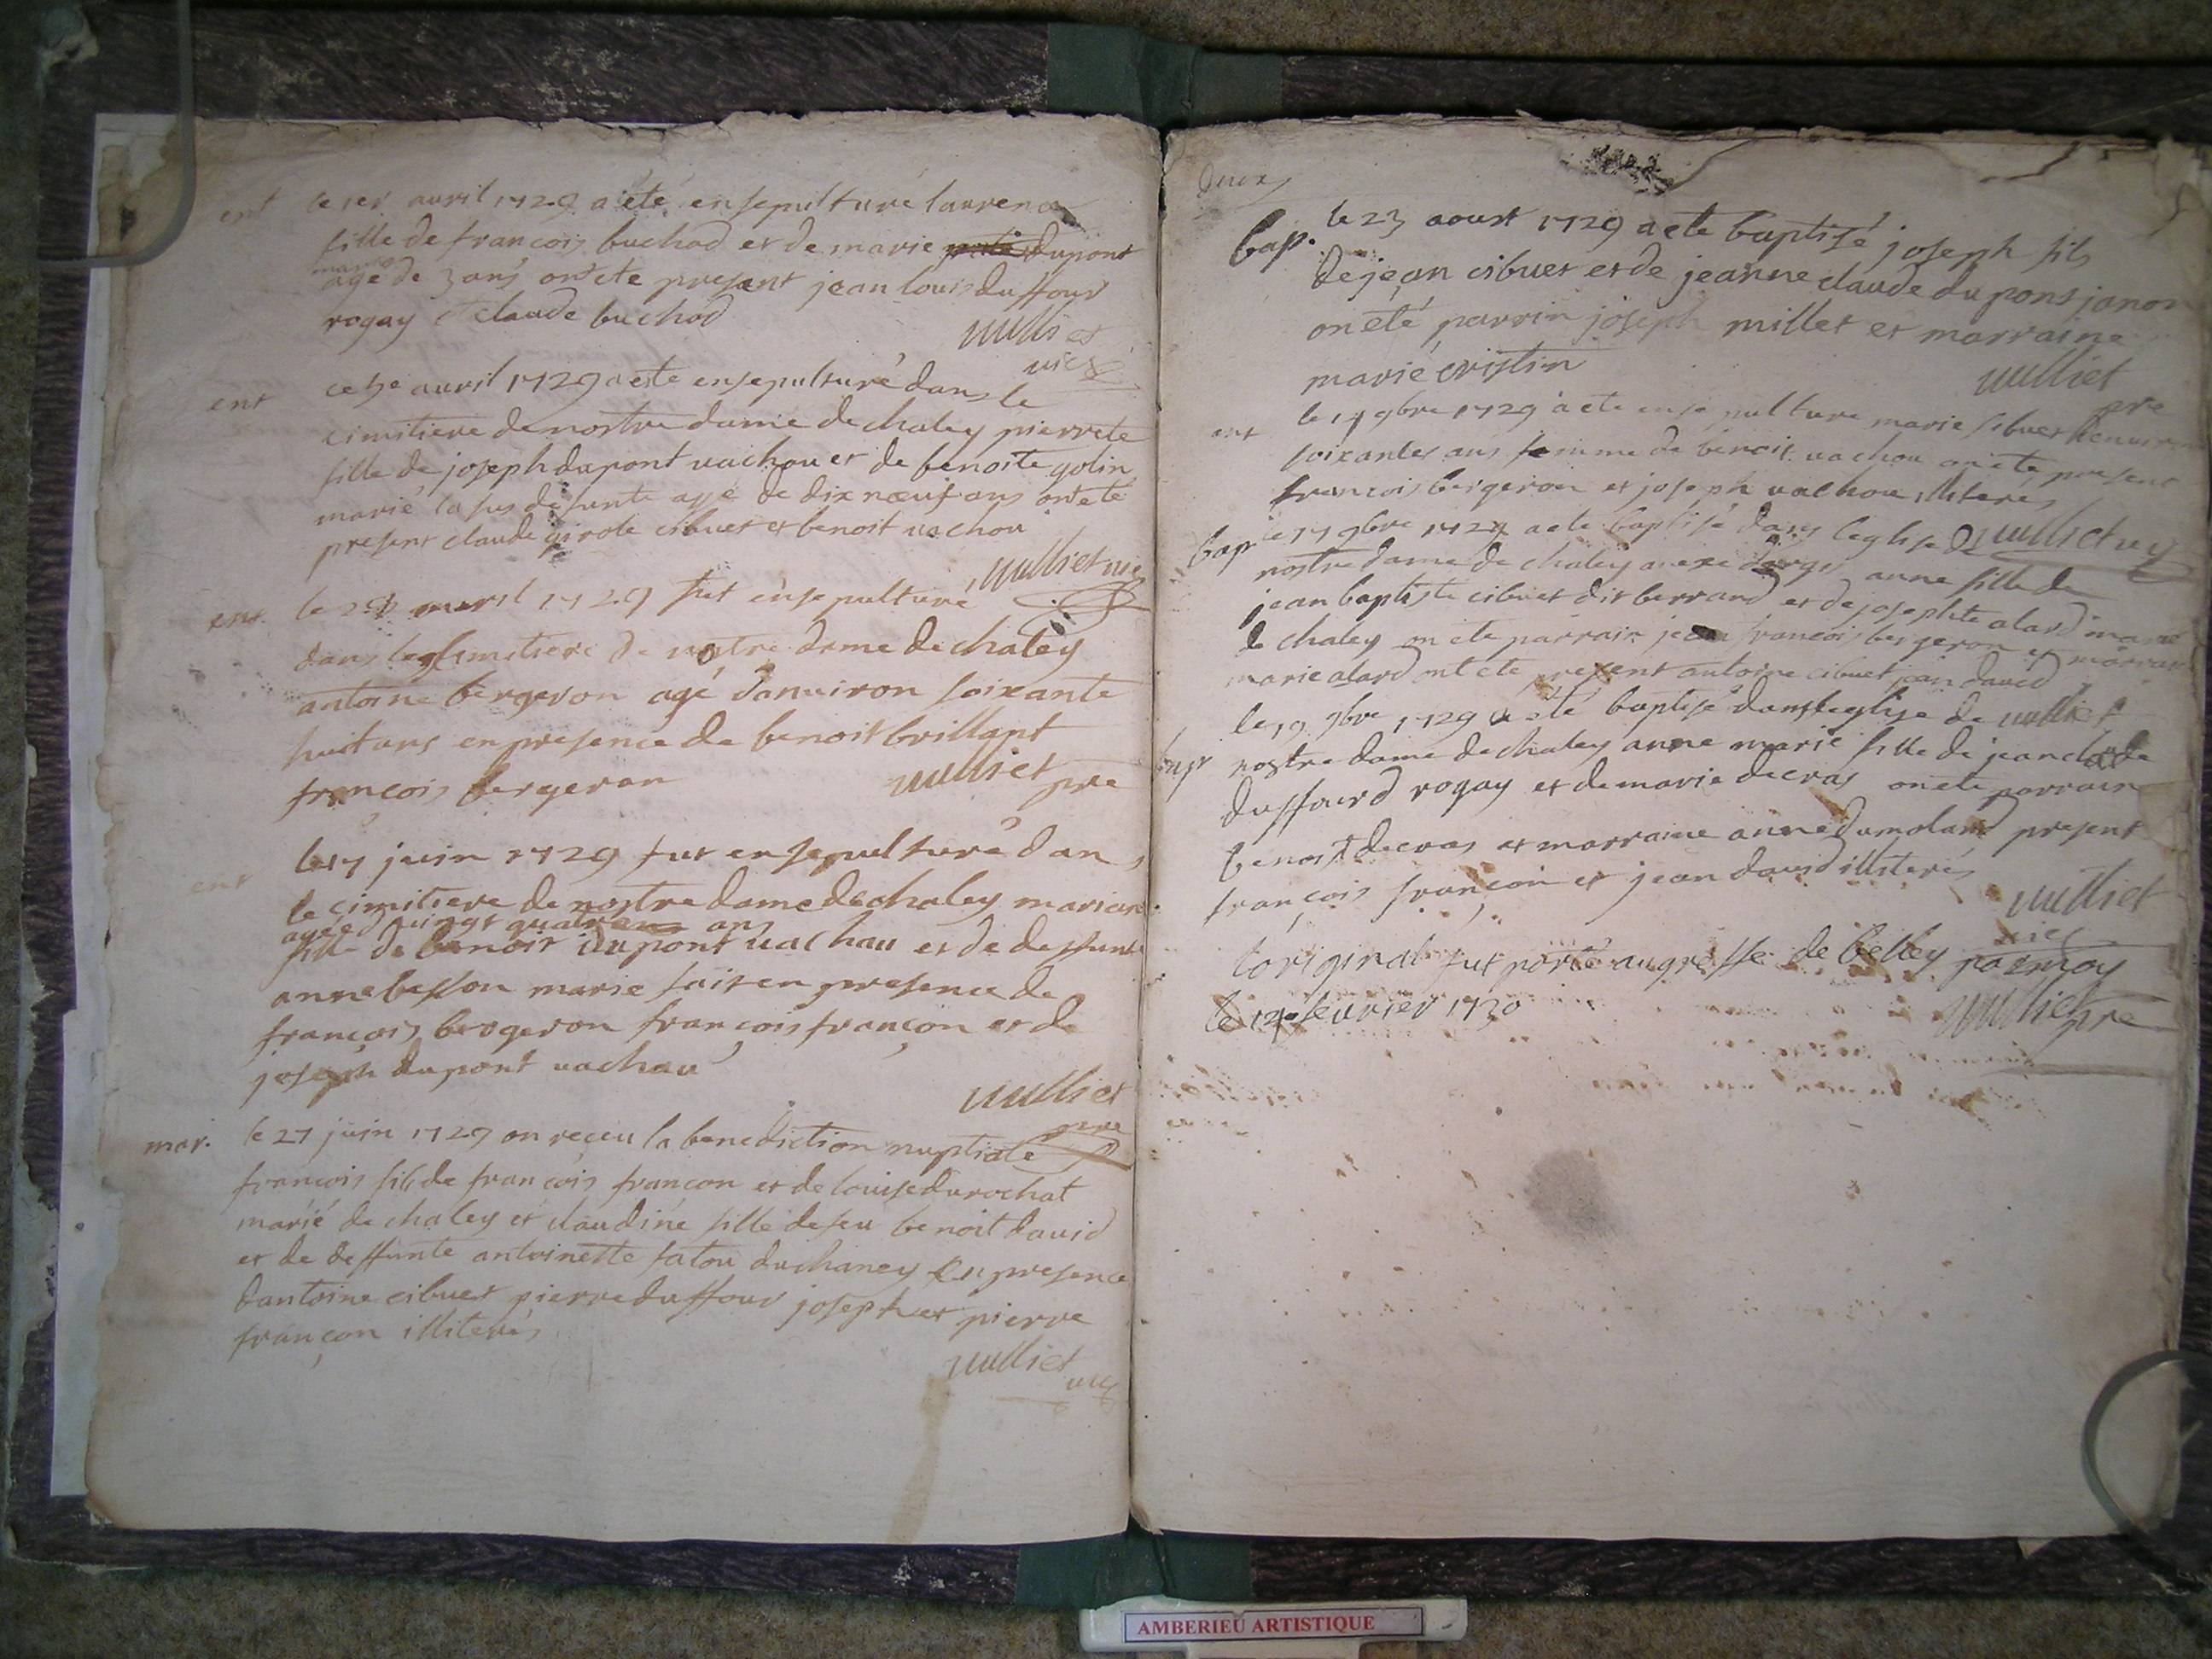 ent le 1er avril 1729 a été ensepulturé laurence
fille de francois buchod et de marie dupont
mariés
agé de 3 ans ont ete present jean louis duffour
rogay et claude buchod
vulliet
vice
ent ce 5e avril 1729 a este ensepulturé dans le
cimitiere de nostre dame de chaley pierrete
fille de joseph dupont vachou et de benoite golin
marié la sus defunte agé de dix nœuf ans ont eté
present claude girole cibuet et benoit vachou
vulliet vic
ent le avril 1729 fut ensepulturé
dans le cimitiere de notre dame de chaley
antoine bergeron agé danuiron soixante
huit ans en presence de benoit brillant
françois bergeron vulliet pre
ent le 17 juin 1729 fut ensepulturé dans
le cimitiere de nostre dame de chaley marian
agée d vingt quatre ans
fille de benoit dupont vachau et de deffunte
anne besson marie fait en presence de
françois bergeron françois françon et de
joseph dupont vachau
vulliet
pre
mar. le 27 juin 1729 on reçeu la benediction nuptiale
francois fils de françois francon et de louise durochat
marié de chaley et claudine fille de feu benoit david
et de deffunte antoinette fatou de chaney en presence
dantoine cibuet pierre duffour joseph et pierre
françon illiterés
vulliet
vic
deux
bap. le 23 aoust 1729 a ete baptisé joseph fils
de jean cibuet et de jeanne claude du pons janon
on eté parrin joseph millet et marraine
marie cristin vulliet
pre
ent le 14 9bre 1729 a ete ensepulture marie sibuet
soixantes ans femme de benoit vachou on ete present
francois bergeron et joseph vachou illiterés
bap le 17 9bre 1729 a ete baptisé dans leglise de vulliet vic
nostre dame de chaley anexe anne fille de
jean baptiste cibuet dit berrand et de josephte alard marié
de chaley on ete parrain jean francois bergeron et marraine
marie alard ont ete present antoine cibuet jean david
le 19 9bre 1729 a eté baptisé dans leglise de vulliet
bap nostre dame de chaley anne marie fille de jean claude
duffourd rogay et de marie decras on ete parrain
benoist decras et marraine anne dumoland present
françois françon et jean david illiterés
vulliet
vic
loriginal fut porté au greffe de belley par moy
le 14e fevrier 1730 vulliet pre
AMBERIEU ARTISTIQUE